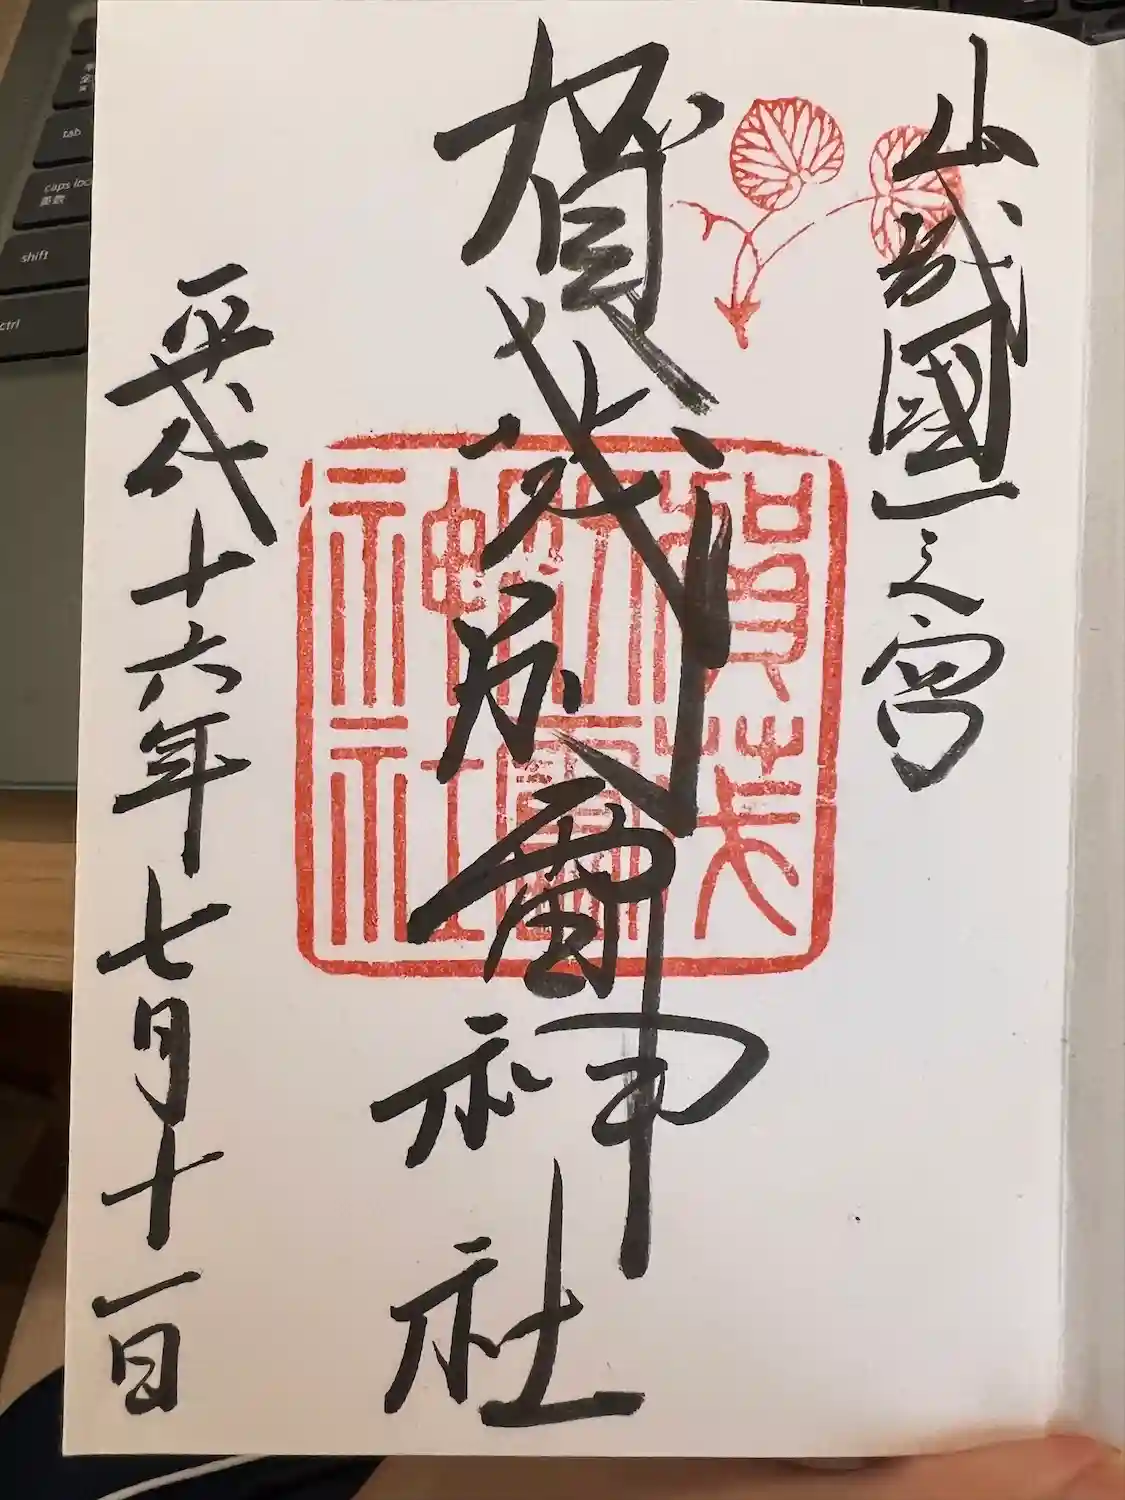 山城國一之宮
賀茂別雷神社
平成十六年七月十一日
賀茂
別雷
神社
tab
caps loc
英数
shift
ctrl